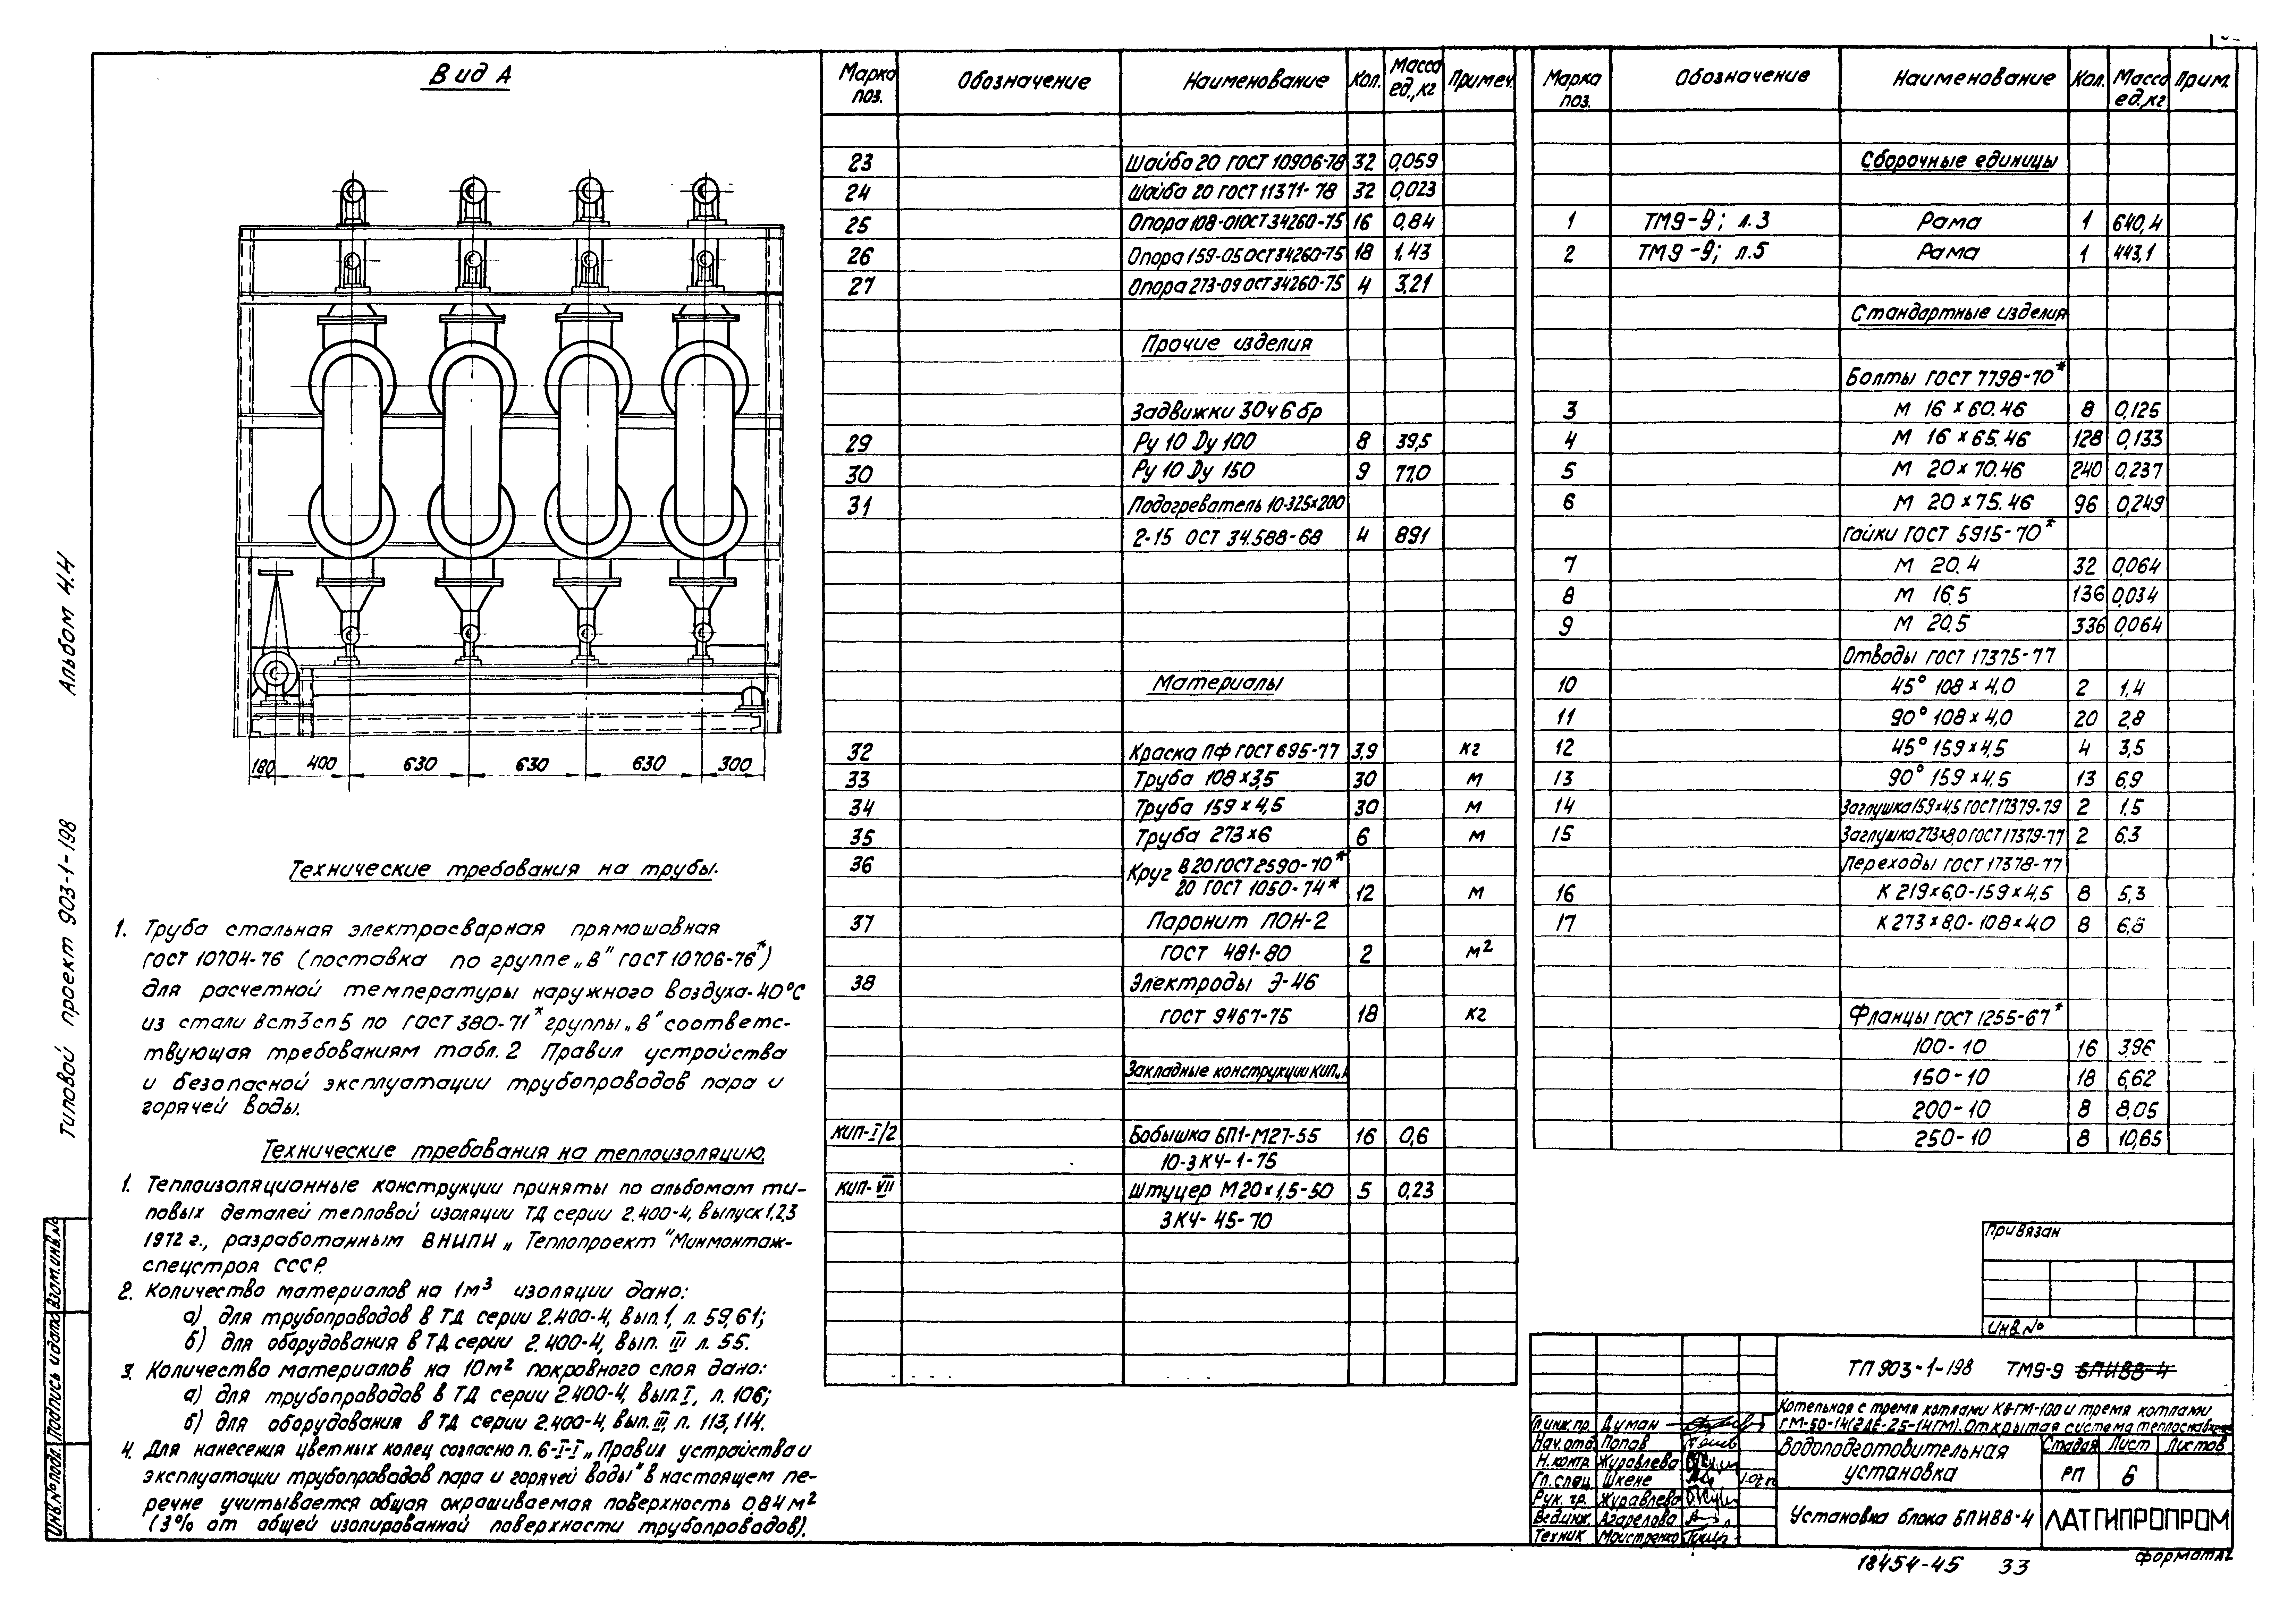 Вид А
180 400 630 630 630 300
Технические требования на трубы.
1. Труба стальная электросварная прямошовная
ГОСТ 10704-76 (поставка по группе „В" ГОСТ 10706-76*)
для расчетной температуры наружного воздуха-40°С
из стали Вст3сп5 по ГОСТ 380-71* группы „В" соответс-
твующая требованиям табл. 2 Правил устройства
и безопасной эксплуатации трубопроводов пара и
горячей воды.
Технические требования на теплоизоляцию.
1. Теплоизоляционные конструкции приняты по альбомам ти-
повых деталей тепловой изоляции ТД серии 2.400-4, выпуск 1,2,3
1972 г., разработанным ВНИПИ „Теплопроект" Минмонтаж-
спецстроя СССР.
2. Количество материалов на 1м³ изоляции дано:
а) для трубопроводов в ТД серии 2.400-4, вып. 1, л. 59,61;
б) для оборудования в ТД серии 2.400-4, вып. III л. 55.
3. Количество материалов на 10м² покровного слоя дано:
а) для трубопроводов в ТД серии 2.400-4, вып. I, л. 106;
б) для оборудования в ТД серии 2.400-4, вып. III, л. 113,114.
4. Для нанесения цветных колец согласно п. 6-I-I „Правил устройства и
эксплуатации трубопроводов пара и горячей воды" в настоящем пе-
речне учитывается общая окрашиваемая поверхность 0,84 м²
(3% от общей изолированной поверхности трубопроводов).
Альбом 4.4
Типовой проект 903-1-198
Инв.№ подл. Подпись и дата Взам.инв.№
Марка поз. Обозначение Наименование Кол. Масса ед.,кг Примеч.
23 Шайба 20 ГОСТ 10906-78 32 0,059
24 Шайба 20 ГОСТ 11371-78 32 0,023
25 Опора 108-01 ОСТ 34260-75 16 0,84
26 Опора 159-05 ОСТ 34260-75 18 1,43
27 Опора 273-09 ОСТ 34260-75 4 3,21
Прочие изделия
Задвижки 30ч6бр
29 Ру 10 Ду 100 8 39,5
30 Ру 10 Ду 150 9 77,0
31 Подогреватель 10-325х200
2-15 ОСТ 34.588-68 4 891
Материалы
32 Краска ПФ ГОСТ 695-77 3,9 кг
33 Труба 108х3,5 30 м
34 Труба 159х4,5 30 м
35 Труба 273х6 6 м
36 Круг В20 ГОСТ 2590-70*
20 ГОСТ 1050-74* 12 м
37 Паронит ПОН-2
ГОСТ 481-80 2 м²
38 Электроды Э-46
ГОСТ 9467-75 18 кг
Закладные конструкции КИПиА
КИП-I/2 Бобышка БП1-М27-55 16 0,6
10-3КЧ-1-75
КИП-VII Штуцер М20х1,5-50 5 0,23
3КЧ-45-70
Марка поз. Обозначение Наименование Кол. Масса ед.,кг Прим.
Сборочные единицы
1 ТМ9-9; л.3 Рама 1 640,4
2 ТМ9-9; л.5 Рама 1 443,1
Стандартные изделия
Болты ГОСТ 7798-70*
3 М 16х60.46 8 0,125
4 М 16х65.46 128 0,133
5 М 20х70.46 240 0,237
6 М 20х75.46 96 0,249
Гайки ГОСТ 5915-70*
7 М 20.4 32 0,064
8 М 16.5 136 0,034
9 М 20.5 336 0,064
Отводы ГОСТ 17375-77
10 45° 108х4,0 2 1,4
11 90° 108х4,0 20 2,8
12 45° 159х4,5 4 3,5
13 90° 159х4,5 13 6,9
14 Заглушка 159х4,5 ГОСТ 17379-79 2 1,5
15 Заглушка 273х8,0 ГОСТ 17379-77 2 6,3
Переходы ГОСТ 17378-77
16 К 219х6,0-159х4,5 8 5,3
17 К 273х8,0-108х4,0 8 6,8
Фланцы ГОСТ 1255-67*
100-10 16 3,96
150-10 18 6,62
200-10 8 8,05
250-10 8 10,65
Привязан
Инв.№
ТП 903-1-198 ТМ9-9 БПИ88-4
Котельная с тремя котлами КВ-ГМ-100 и тремя котлами
ГМ-50-14(2ДЕ-25-14ГМ). Открытая система теплоснабж.
Гл.инж.пр. Думан
Нач.отд. Попов
Н.контр. Журавлева
Гл.спец. Шкене
Рук. гр. Журавлева
Вед.инж. Агарелова
Техник
Водоподготовительная установка
Стадия Лист Листов
РП 6
Установка блока БПИ88-4
ЛАТГИПРОПРОМ
18454-45 33
формат А2